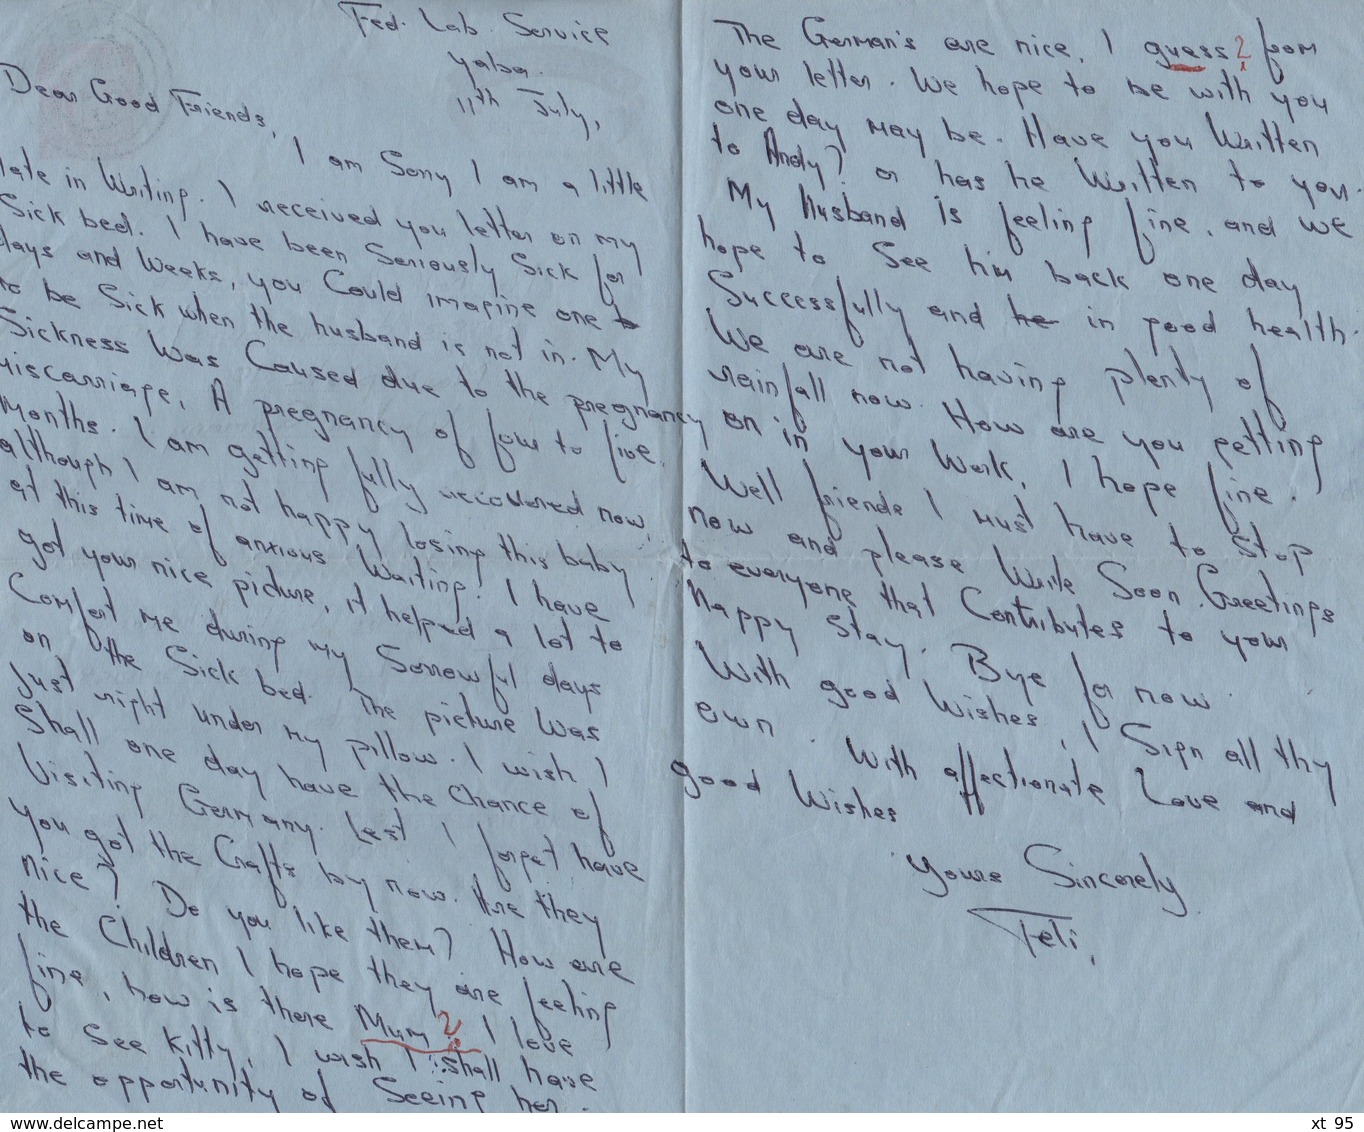 Fed. Lab. Service
Yaba.
11th July,
Dear Good Friends,
I am Sorry I am a little
late in Writing. I received you letter on my
Sick bed. I have been Seriously Sick for
days and Weeks, you Could imagine one to
to be Sick when the husband is not in. My
Sickness Was Caused due to the pregnancy
miscarriage. A pregnancy of four to five
Months. I am getting fully recovered now
although I am not happy losing this baby
at this time of anxious Waiting. I have
got your nice picture, it helped a lot to
Comfort me during my Sorrowful days
on the Sick bed. The picture Was
Just right under my pillow. I wish I
Shall one day have the Chance of
Visiting Germany. Lest I forget have
you got the Crafts by now. Are they
nice? Do you like them? How are
the Children I hope they are feeling
fine, how is there Mum? I love
to See Kitty, I wish I shall have
the opportunity of Seeing her.
The German's are nice, I guess? from
your letter. We hope to be with you
one day may be. Have you Written
to Andy? or has he Written to you.
My husband is feeling fine, and we
hope to See him back one day
Successfully and he in good health.
We are not having plenty of
rainfall now. How are you getting
on in your Work, I hope fine.
Well friends I must have to Stop
now and please Write Soon. Greetings
to everyone that Contributes to your
happy Stay. Bye for now.
With good Wishes, I Sign all thy
own. With affectionate Love and
good Wishes
Yours Sincerely
Feli.
www.delcampe.net
xt 95